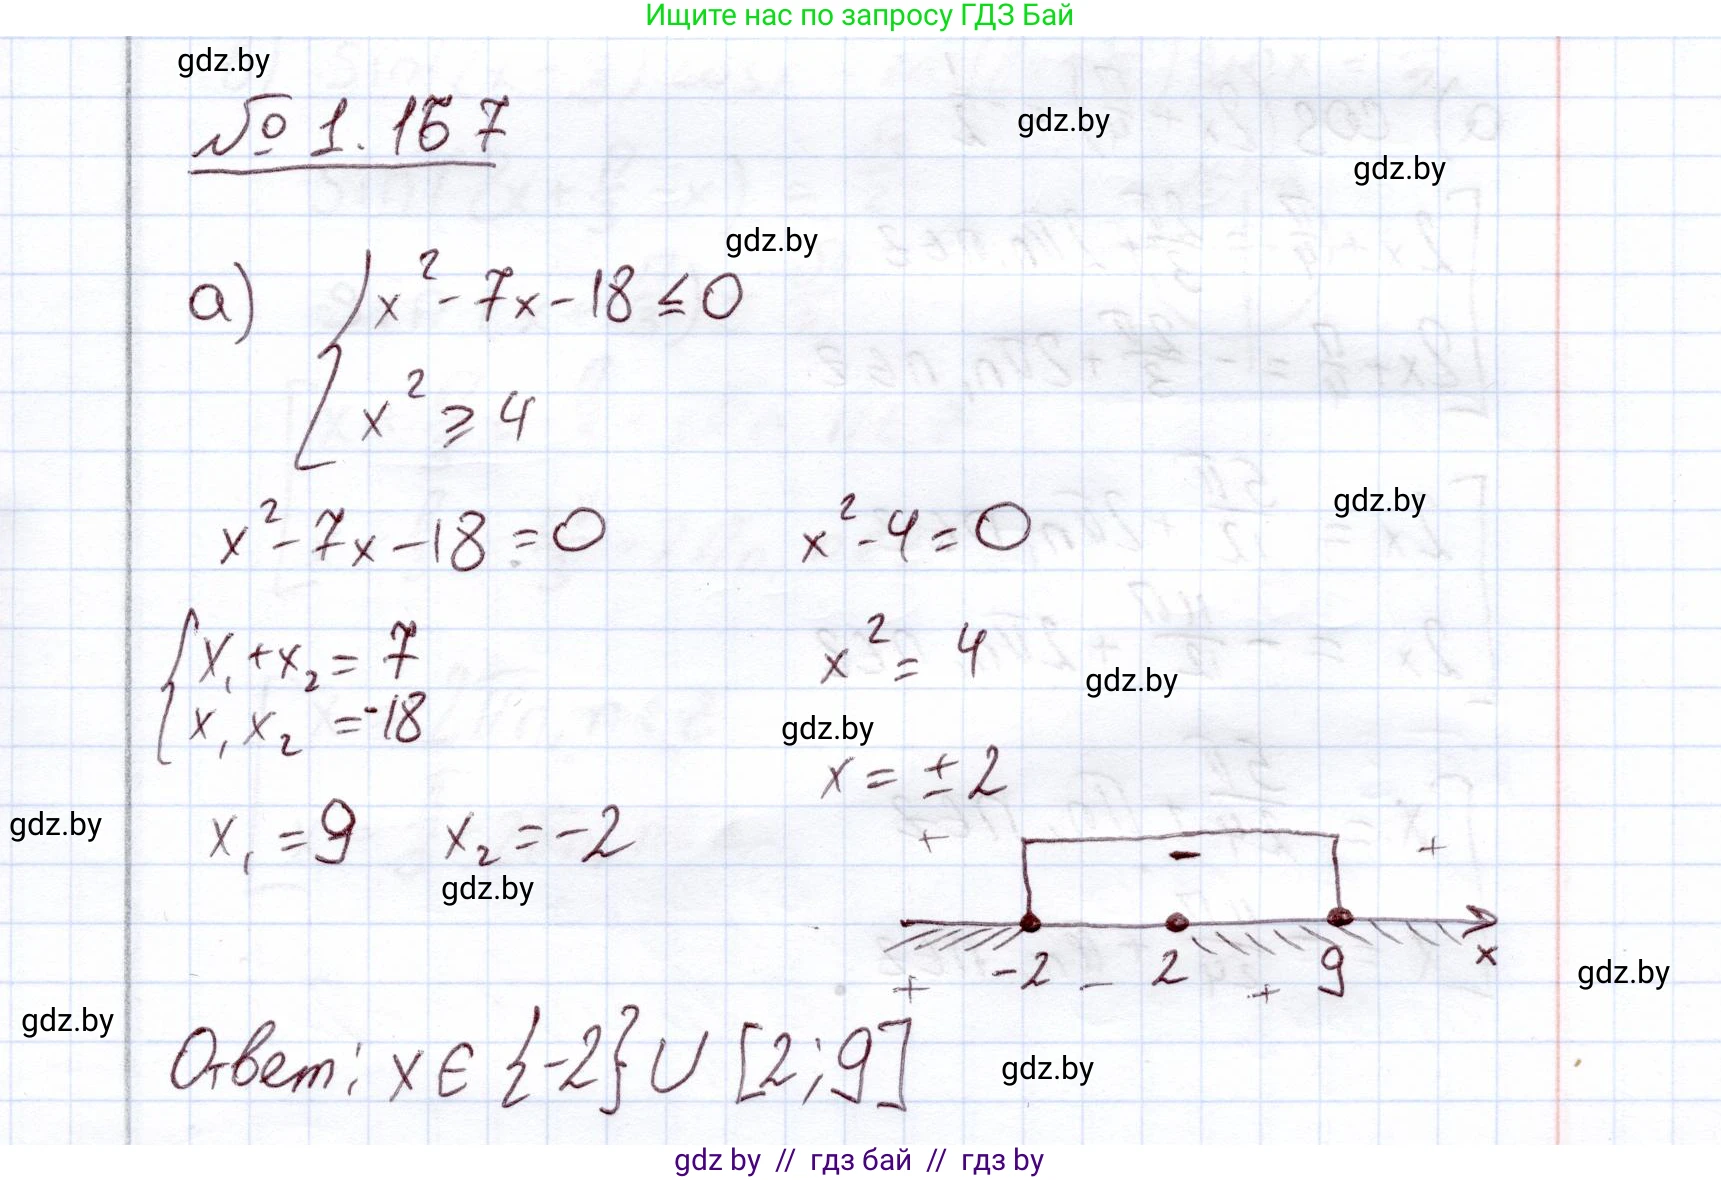 Ищите нас по запросу ГДЗ Бай
gdz.by
№ 1.167
gdz.by
gdz.by
gdz.by
а) { x² - 7x - 18 ≤ 0
x² ⩾ 4
gdz.by
x² - 7x - 18 = 0    x² - 4 = 0
{ x₁ + x₂ = 7    x² = 4
gdz.by
x₁ x₂ = -18
gdz.by
x = ± 2
gdz.by
x₁ = 9    x₂ = -2
+ - +
gdz.by
-2 2 9 x
+ - +
gdz.by
gdz.by
Ответ: x ∈ {-2} ∪ [2; 9]
gdz.by
gdz by // гдз бай // гдз by